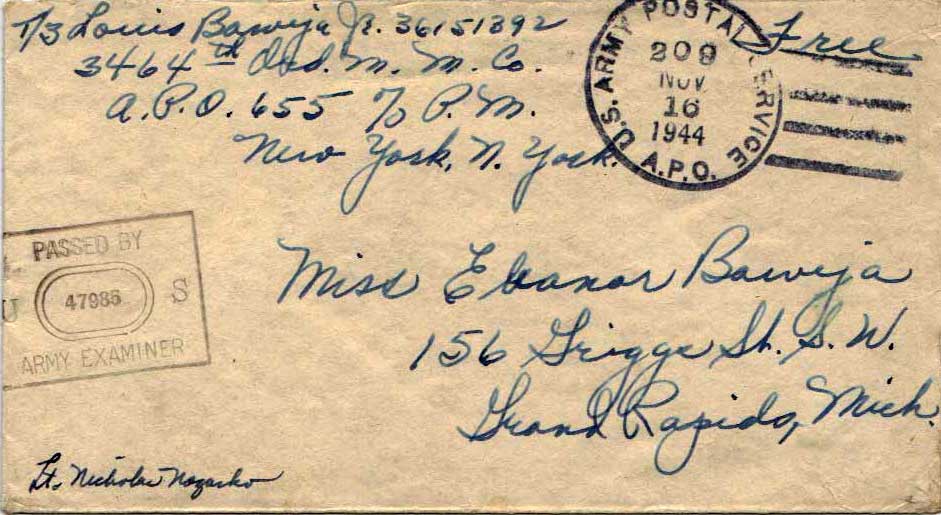 T/3 Louis Baweja Jr. 36151392
3464th Ord. M. M. Co.
A.P.O. 655 c/o P.M.
New York, N. York.
Free
U.S. ARMY POSTAL SERVICE
209
NOV
16
1944
A.P.O.
PASSED BY
U 47985 S
ARMY EXAMINER
Miss Eleanor Baweja
156 Griggs St. S. W.
Grand Rapids, Mich.
Lt. Nicholas Nazarko